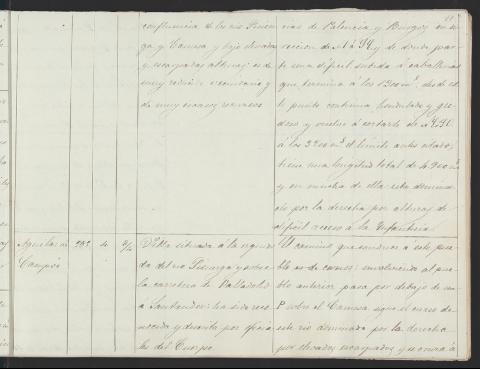 confluencia de los rios Pisuer
ga y Camesa y bajo elevadas
y escarpadas alturas; es de
muy reducido vecindario y
de muy escasos recursos
cias de Palencia y Burgos en di
reccion de y de donde par
te una dificil subida á caballerias
que termina á los 1300 m.s desde es
te punto continua hondutado y pe
droso y vuelve á cortarle de
á los 3200 m.s el limite antes citado,
tiene una longitud total de 4.200 m.s
y en mucha de ella esta domina
do por la derecha por alturas de
dificil acceso á la Infanteria
Aguilar de
Campoó
292
4
Villa situada á la izquier
da del rio Pisuerga y sobre
la carretera de Valladolid
á Santander: ha sido reco
nocida y descrita por oficia
les del Cuerpo.
El camino que conduce á este pue
blo es de carros: envolviendo al pue
blo anterior pasa por debajo de un
P. sobre el Camesa, sigue el curso de
este rio dominado por la derecha
por elevados escarpados y se une á